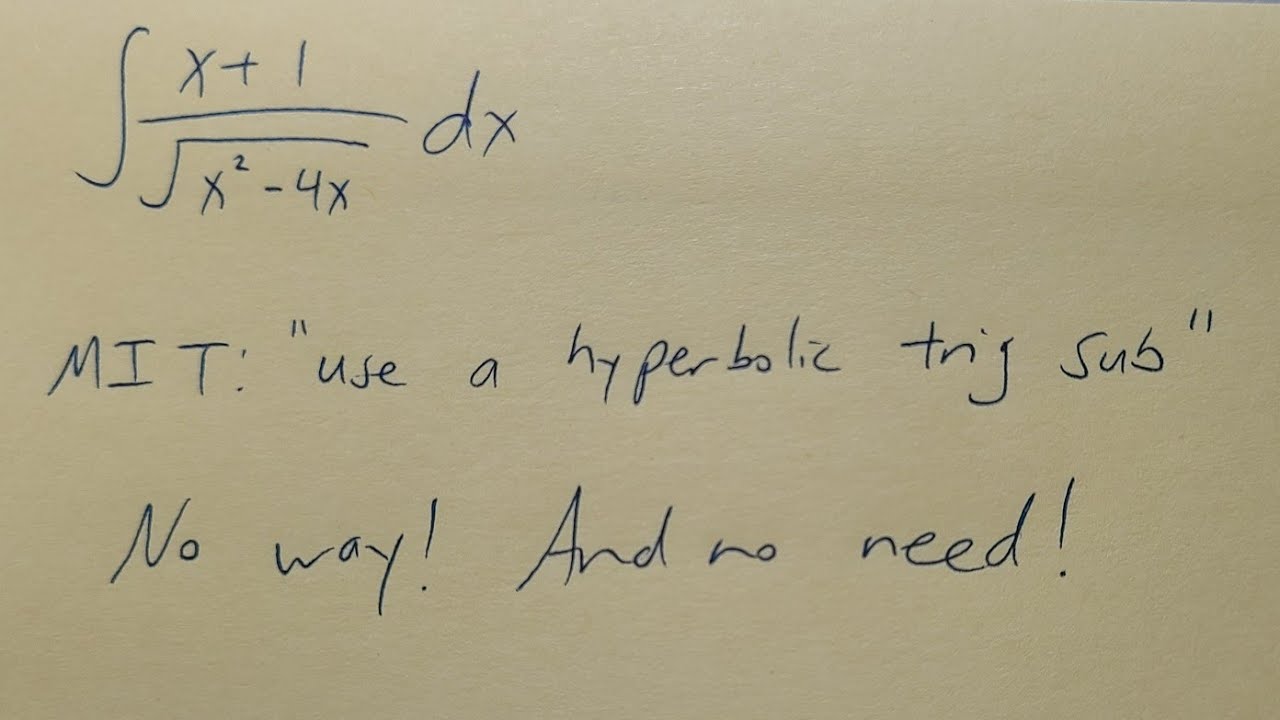 ∫ (x + 1)/√(x² - 4x) dx
MIT: "use a hyperbolic trig sub"
No way! And no need!